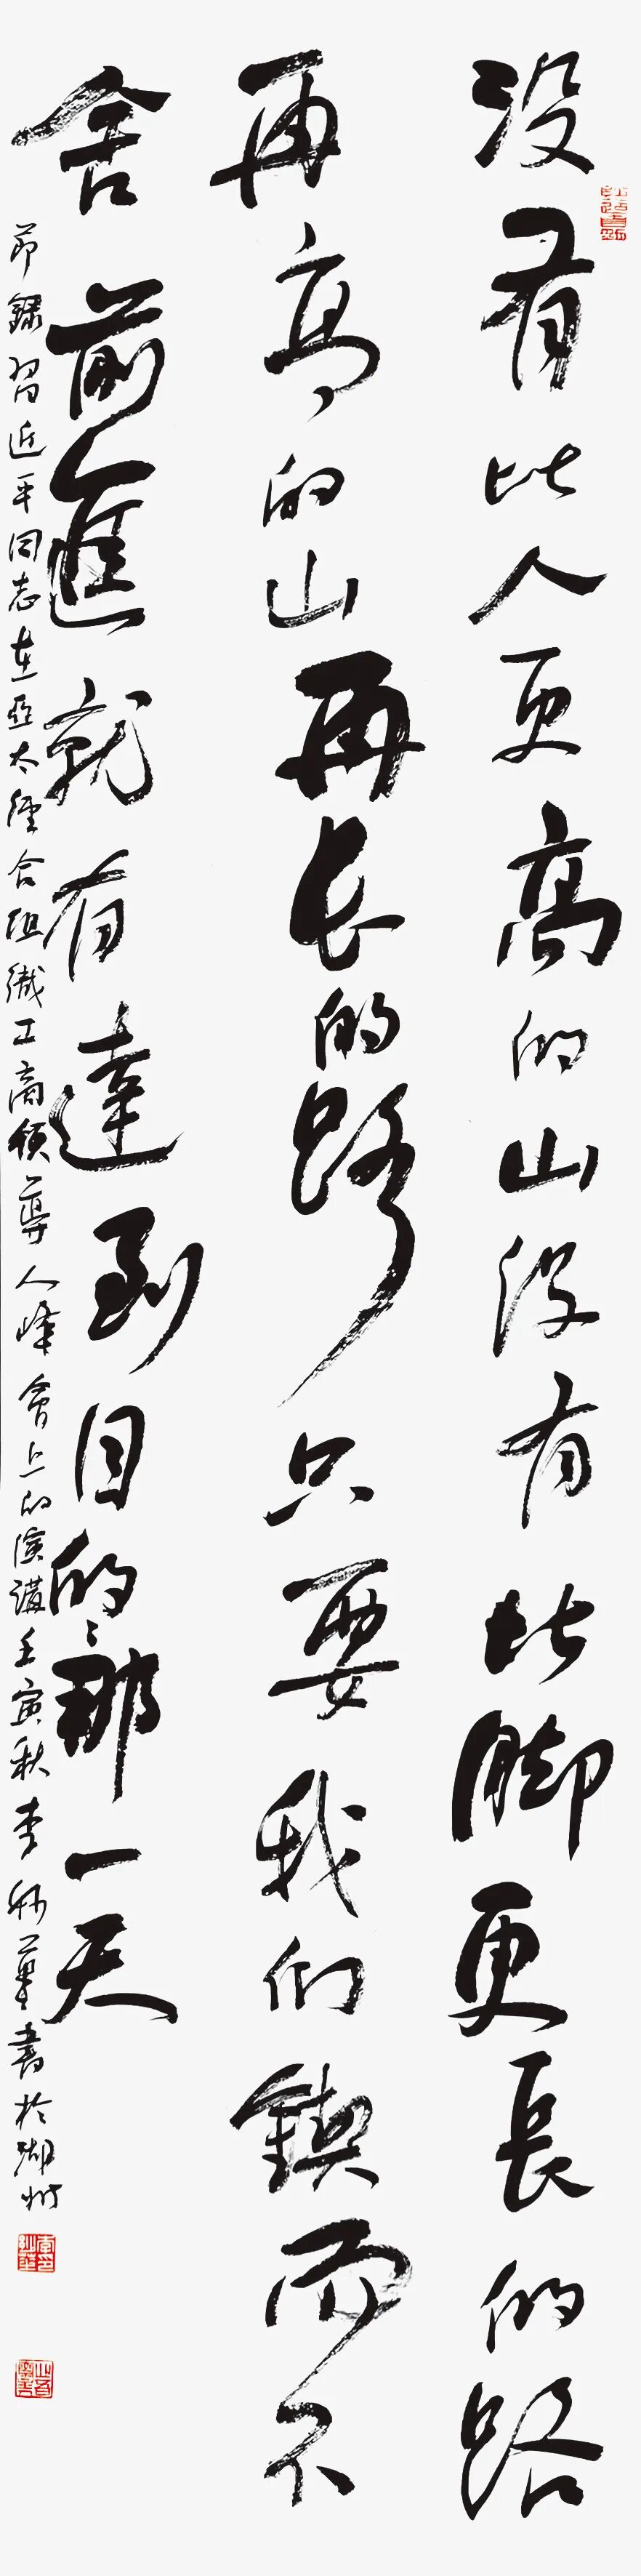 没有比人更高的山没有比脚更長的路
再高的山再长的路只要我们鍥而不
舍前進就有達到目的的那一天
節録習近平同志在亞太經合組織工商領導人峰會上的演講壬寅秋李 華書於湖州